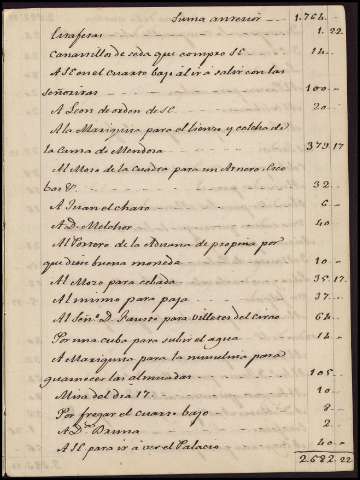 Suma anterior 1.764..
Estafeta 1. 22.
Canastillos de seda que compró S.E. 14..
A S.E. en el cuarto bajo al ir á salir con las
señoritas 100..
A Leon de orden de S.E. 20..
A la Mariquita para el lienzo y colcha de
la Cuna de Mendoza 373. 17
Al Mozo de la Cuadra para un Arnero, Esco
bas &. 32..
A Juan el charo 6..
A D. Melchor 40
Al Portero de la Aduana de propina por
que diese buena moneda 10..
Al Mozo para cebada 35. 17.
Al mismo para paja 37...
Al Señ.r D. Fausto para villetes del circo 64..
Por una cuba para subir el agua 14..
A Mariquita para la muselina para
guarnecer las almoadas 105..
Misa del dia 17. 10..
Por fregar el cuarto bajo 8
A D.ª Bruna 2..
A S.E. para ir á ver el Palacio 40..
2.682. 22